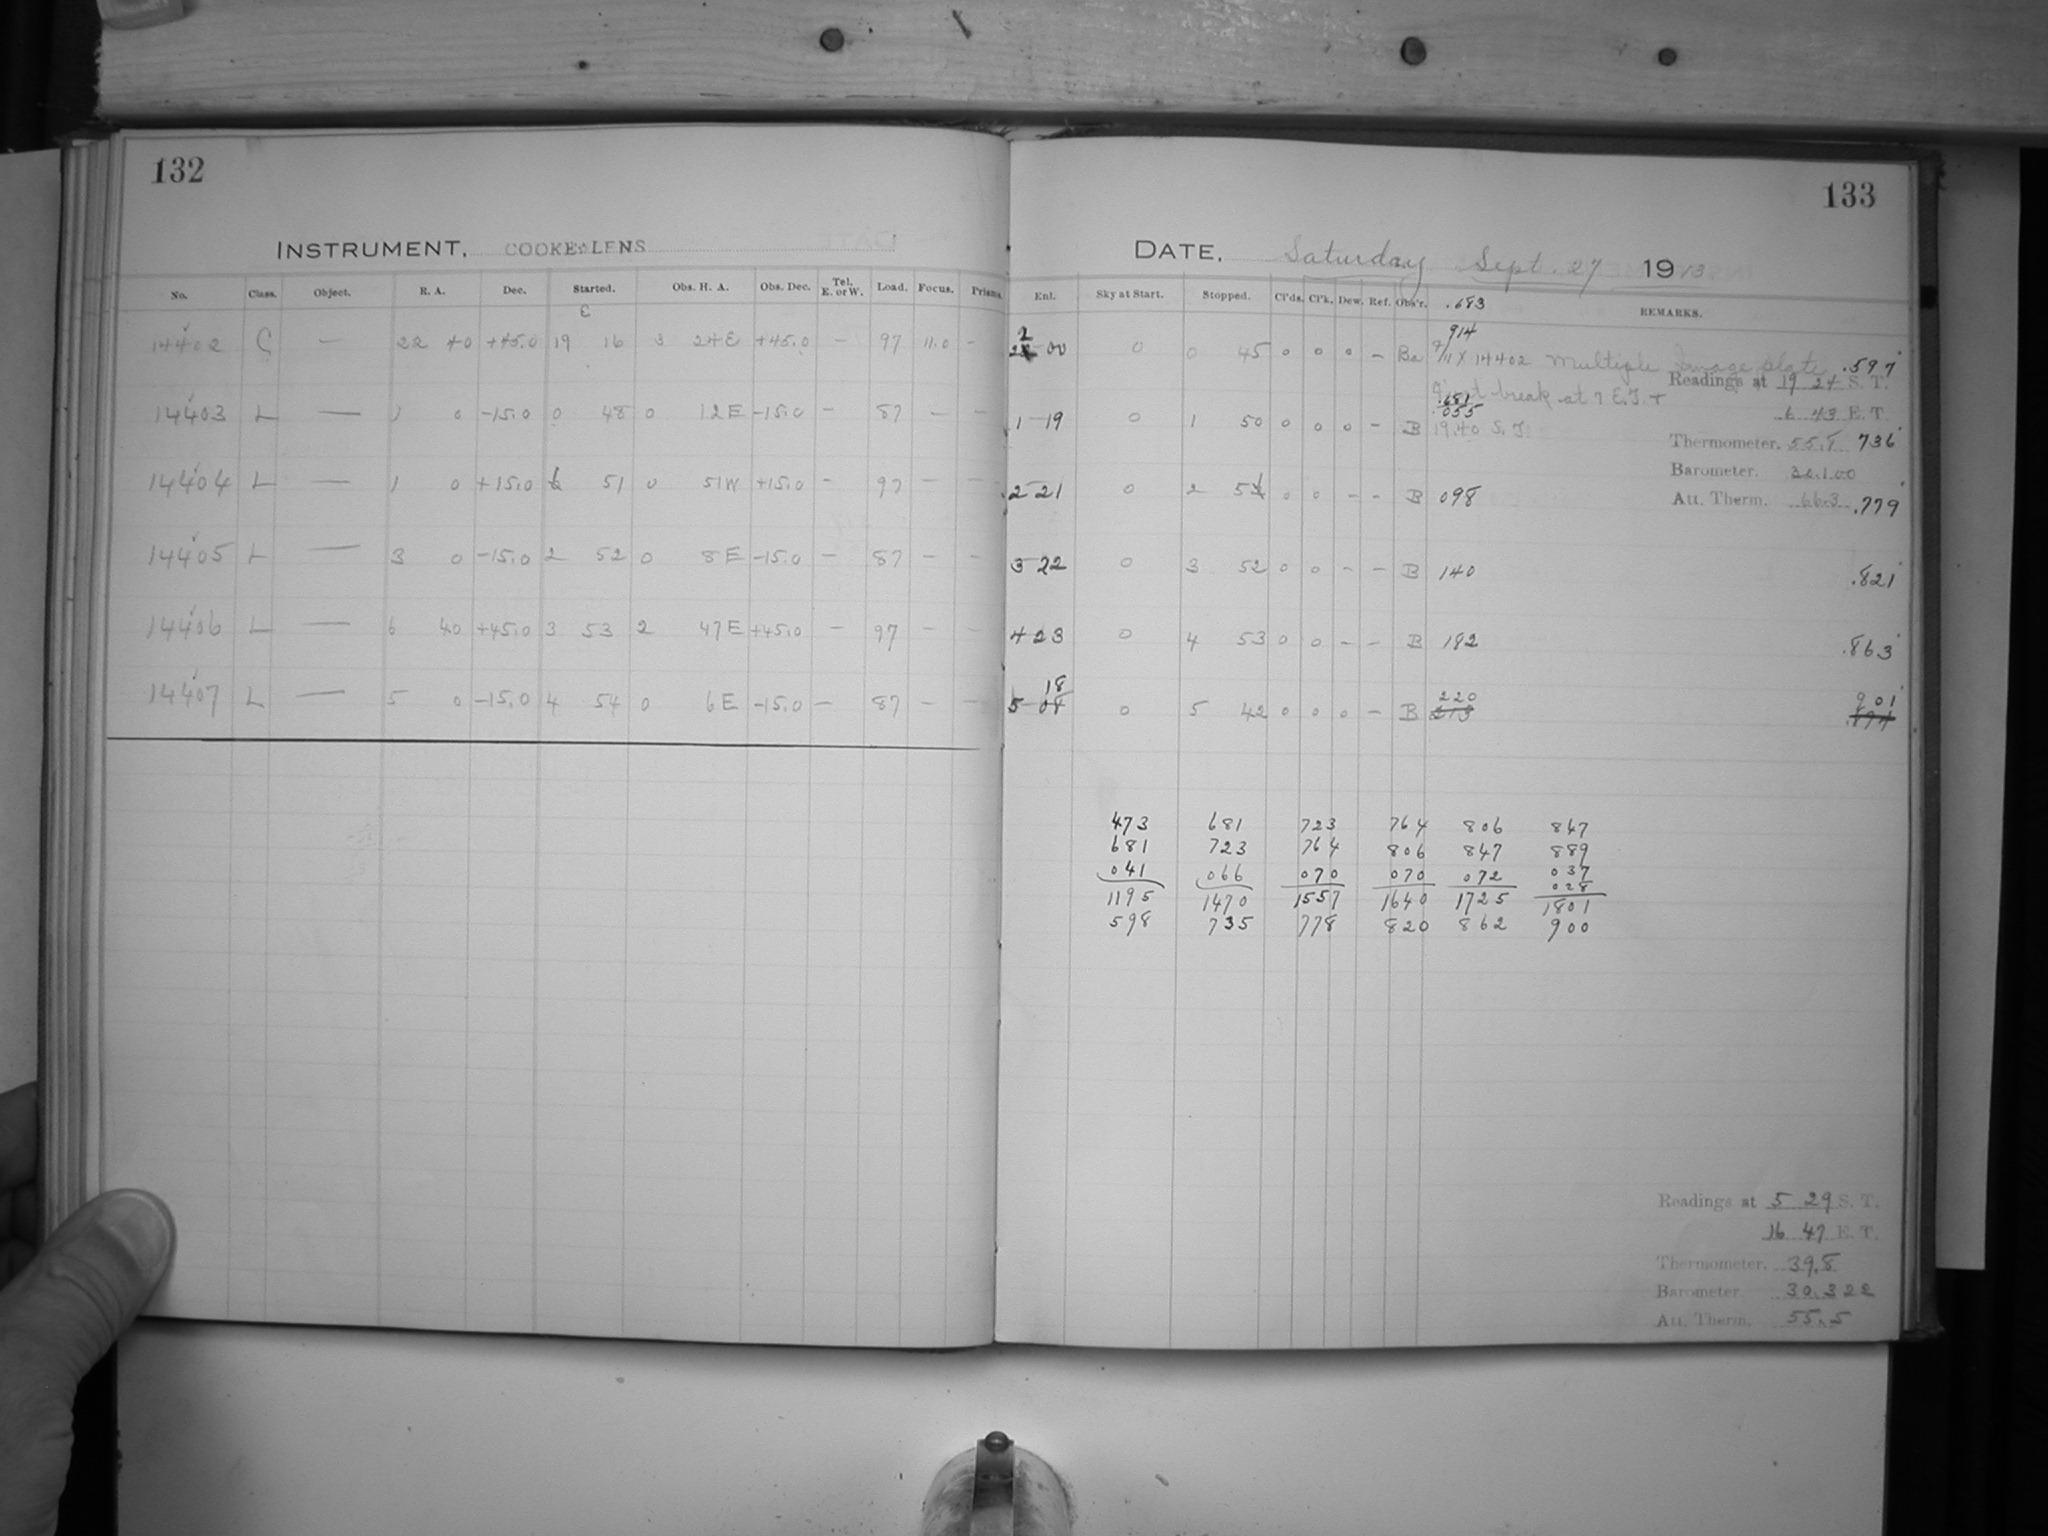 132
INSTRUMENT. COOKE LENS
No. Class. Object. R. A. Dec. Started. Obs. H. A. Obs. Dec. Tel. E. or W. Load. Focus. Prisms
14402 C — 22 40 +45.0 19 16 3 24E +45.0 — 97 11.0 –
14403 L — 1 0 –15.0 0 48 0 12E –15.0 – 87 – –
14404 L — 1 0 +15.0 51 0 51W +15.0 – 97 – –
14405 L — 3 0 –15.0 2 52 0 8E –15.0 – 87 – –
14406 L — 6 40 +45.0 3 53 2 47E +45.0 – 97 – –
14407 L — 5 0 –15.0 4 54 0 6E –15.0 – 87 – –
133
DATE. Saturday Sept. 27 1913
Enl. Sky at Start. Stopped. Cl'ds. Cl'k. Dew. Ref. Obs'r. .683 REMARKS.
914
22–00 0 0 45 0 0 0 – Ba 14402 Multiple Image plate .597
Readings at 19 24 S. T.
break at 7 E.T. +
.681
.055
6 43 E. T.
1–19 0 1 50 0 0 0 – B 19.40 S.T.
Thermometer. 55.8 736
Barometer. 30.100
Att. Therm. 66.3 .779
2–21 0 2 52 0 0 – – B 098
3–22 0 3 52 0 0 – – B 140 .821
4–23 0 4 53 0 0 – – B 182 .863
18 220 901
5–08 0 5 42 0 0 0 – B 213 .894
473 681 723 764 806 847
681 723 764 806 847 889
041 066 070 070 072 037
028
1195 1470 1557 1640 1725 1801
598 735 778 820 862 900
Readings at 5 29 S. T.
16 47 E. T.
Thermometer. 39.8
Barometer. 30.322
Att. Therm. 55.5